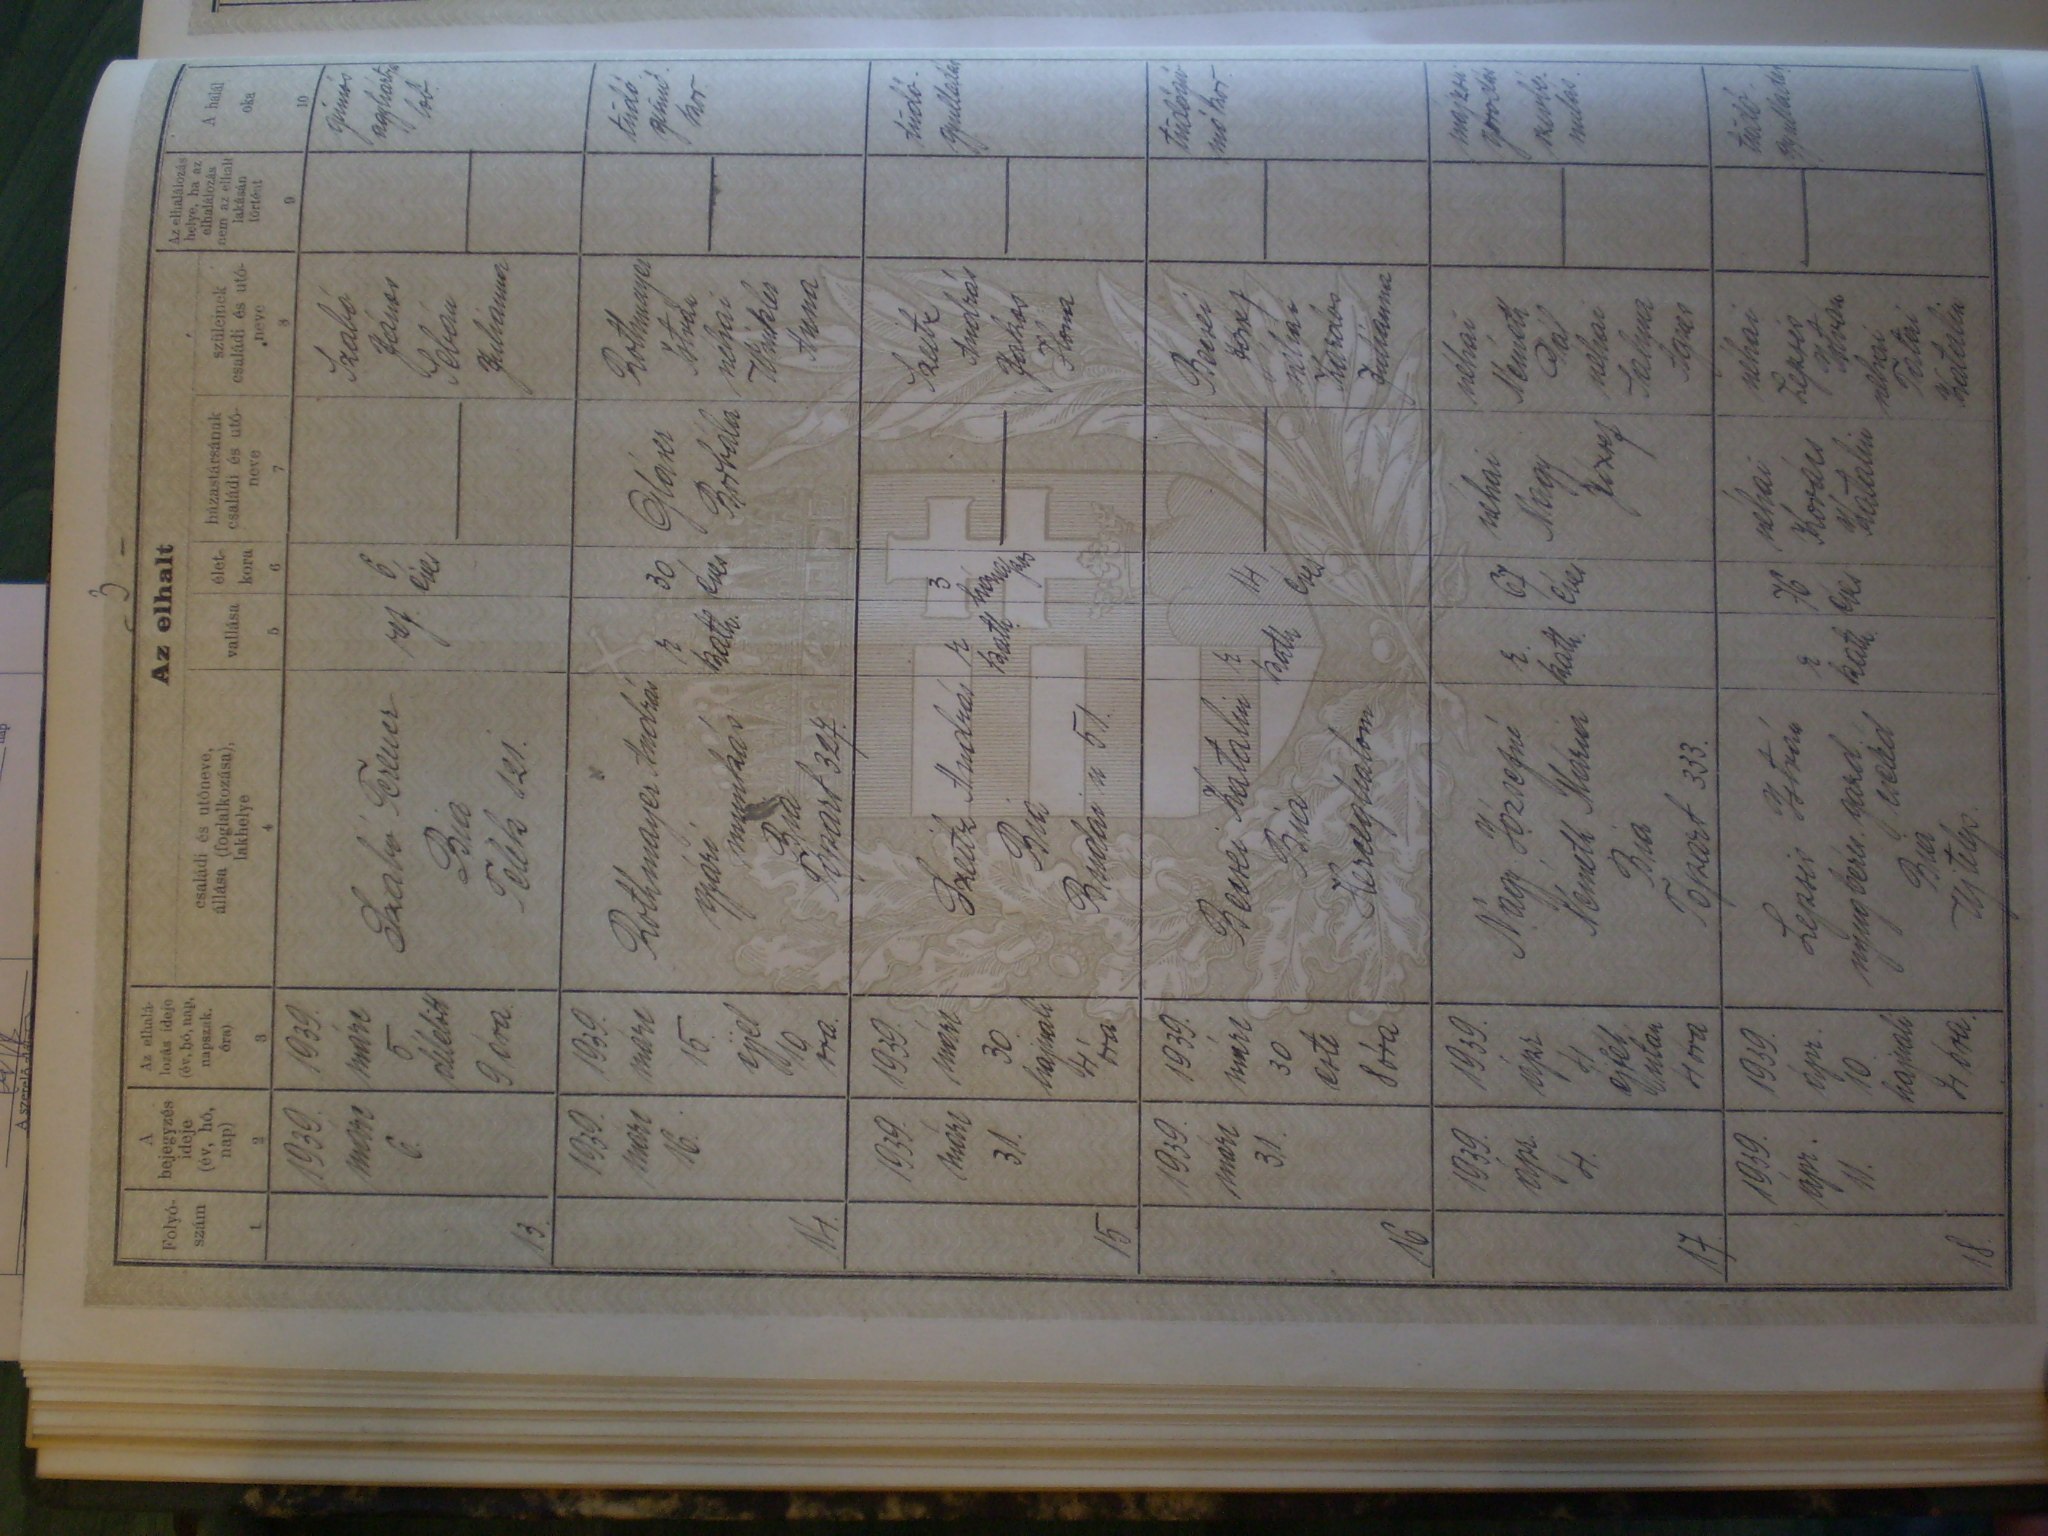 - 3 -
Az elhalt
Folyó-
szám
A
bejegyzés
ideje
(év, hó,
nap)
Az elhalá-
lozás ideje
(év, hó, nap,
napszak,
óra)
családi és utóneve,
állása (foglalkozása),
lakhelye
vallása
élet-
kora
házastársának
családi és utó-
neve
szüleinek
családi és utó-
neve
Az elhalálozás
helye, ha az
elhalálozás
nem az elhalt
lakásán
történt
A halál
oka
1
2
3
4
5
6
7
8
9
10
13.
1939.
márc
6.
1939.
márc
5
délelőtt
9 óra.
Szabó Ferenc
Bia
Telek 121.
ref.
6
éves
Szabó
János
Juliánna
gümős
agyhártya
lob.
14.
1939.
márc
16.
1939.
márc
15.
éjjel
10
óra.
Rothmayer András
gyári
munkás
Bia
Tópart 327.
r
kath.
30
éves
Gláser
Borbála
Rothmayer
István
néhai
Winkler
Anna
tüdő
gümő
kor.
15
1939.
márc
31.
1939.
márc
30
hajnali
4
óra
Szeitz András
Bia
Budai u 51.
r
kath.
3
Szeitz
András
Ilona
tüdő-
gyulladás
16
1939.
márc
31.
1939.
márc
30
este
8 óra
Katalin
Bia
Herceghalom
r
kath
14
éves
József
néhai
Juliánna
17.
1939.
ápr.
4.
1939.
ápr
4
éjfél
után
4 óra
Nagy Józsefné
Németh Mária
Bia
Tópart 333.
r.
kath.
67
éves
néhai
Nagy
József
néhai
Németh
Pál
néhai
Ágnes
18.
1939.
ápr.
11.
1939
ápr.
10.
hajnali
4 óra.
István
Bia
Ujtelep.
r
kath
76
éves
néhai
Katalin
néhai
István
néhai
Katalin
tüdő-
gyulladás